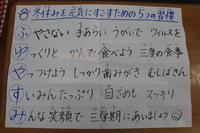 冬休みを元気にすごすための5つの習慣
ふやさない 手あらい うがいで ウイルスを
ゆっくりと かんで食べよう 三度の食事
やっつけよう しっかり歯みがき むしばきん
すいみん たっぷり 目ざめも スッキリ
みんな笑顔で 三学期にあいましょう